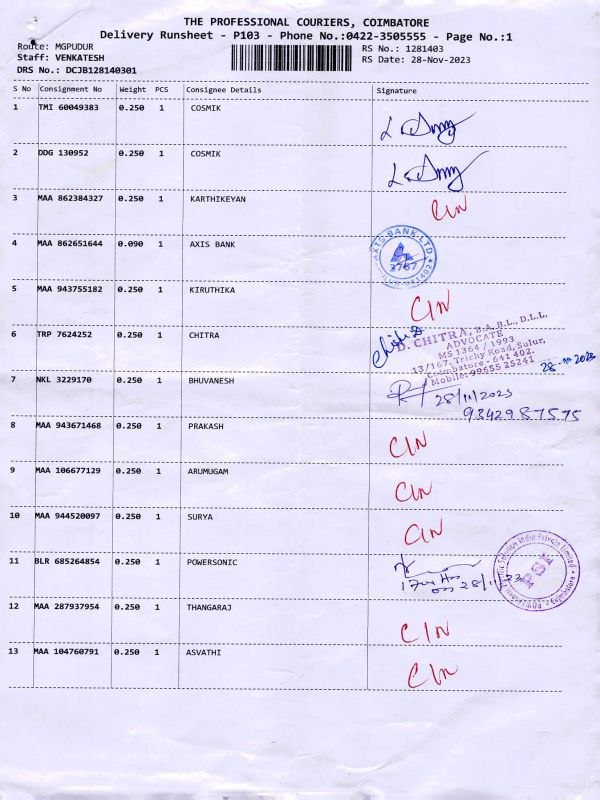 THE PROFESSIONAL COURIERS, COIMBATORE
Delivery Runsheet - P103 - Phone No.:0422-3505555 - Page No.:1
Route: MGPUDUR RS No.: 1281403
Staff: VENKATESH RS Date: 28-Nov-2023
DRS No.: DCJB128140301
S No Consignment No Weight PCS Consignee Details Signature
1 TMI 60049383 0.250 1 COSMIK
2 DDG 130952 0.250 1 COSMIK
3 MAA 862384327 0.250 1 KARTHIKEYAN CIN
4 MAA 862651644 0.090 1 AXIS BANK
AXIS BANK LTD
3767
641402
5 MAA 943755182 0.250 1 KIRUTHIKA CIN
6 TRP 7624252 0.250 1 CHITRA
D. CHITRA, B.A.,B.L., D.L.L.,
ADVOCATE
MS 1364 / 1993
13/167, Trichy Road, Sulur,
Coimbatore - 641 402.
Mobile: 99655 25241
28-11-2023
7 NKL 3229170 0.250 1 BHUVANESH 28/11/2023
9342987575
8 MAA 943671468 0.250 1 PRAKASH CIN
9 MAA 106677129 0.250 1 ARUMUGAM CIN
10 MAA 944520097 0.250 1 SURYA CIN
11 BLR 685264854 0.250 1 POWERSONIC
28/11/23
Solution India Private Limited
PSI
Coimbatore
12 MAA 287937954 0.250 1 THANGARAJ CIN
13 MAA 104760791 0.250 1 ASVATHI CIN